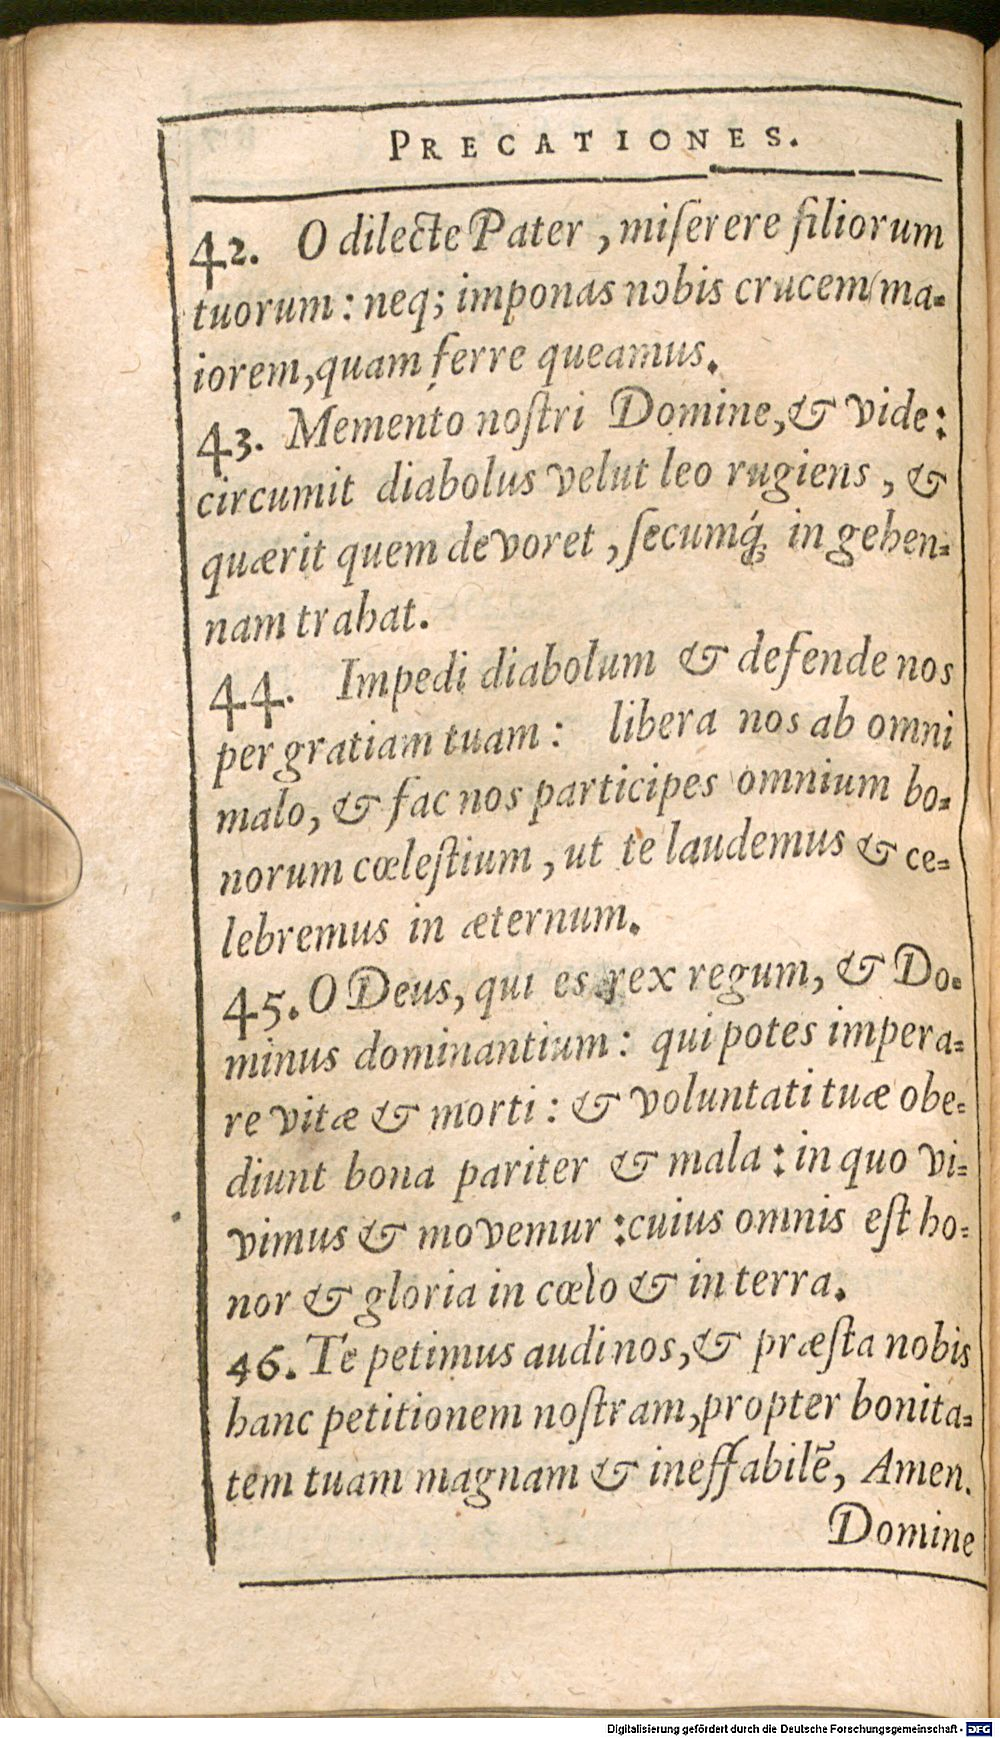 PRECATIONES.
42. O dilecte Pater, miſerere filiorum
tuorum: neq; imponas nobis crucem ma-
iorem, quam ferre queamus.
43. Memento noſtri Domine, & vide:
circumit diabolus velut leo rugiens, &
quærit quem devoret, ſecumq́ꝫ in gehen-
nam trahat.
44. Impedi diabolum & defende nos
per gratiam tuam: libera nos ab omni
malo, & fac nos participes omnium bo-
norum cœleſtium, ut te laudemus & ce-
lebremus in æternum.
45. O Deus, qui es rex regum, & Do-
minus dominantium: qui potes impera-
re vitæ & morti: & voluntati tuæ obe-
diunt bona pariter & mala: in quo vi-
vimus & movemur: cuius omnis eſt ho-
nor & gloria in cœlo & in terra.
46. Te petimus audi nos, & præſta nobis
hanc petitionem noſtram, propter bonita-
tem tuam magnam & ineffabilē, Amen.
Domine
Digitalisierung gefördert durch die Deutsche Forschungsgemeinschaft - DFG